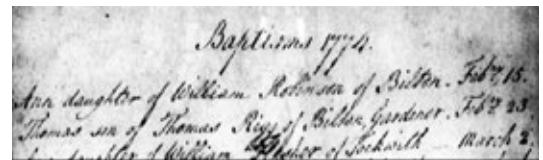 Baptisms 1774.
Ann daughter of William Robinson of Bilton. Feb.y 15.
Thomas son of Thomas Rigg of Bilton, Gardener. Feb.y 23
daughter of William of Tockwith — March 2.